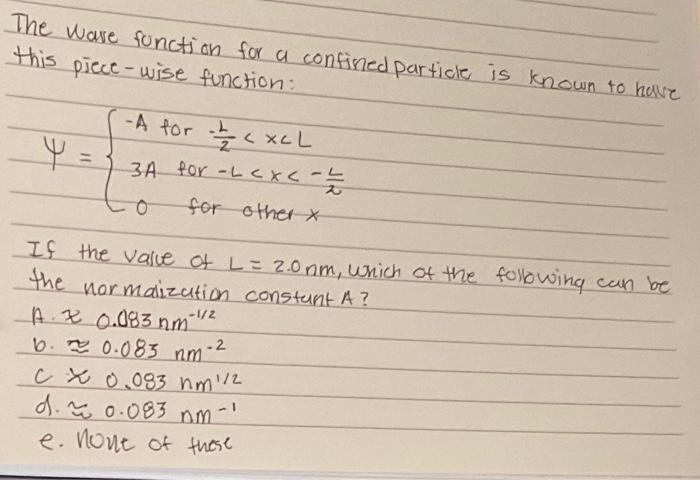 The wave function for a confined particle is known to have
this piece-wise function:
-A for -L/2 < x < L
Ψ = { 3A for -L < x < -L/2
0 for other x
If the value of L = 2.0 nm, which of the following can be
the normalization constant A?
A. ≈ 0.083 nm^-1/2
b. ≈ 0.083 nm^-2
c ≈ 0.083 nm^1/2
d. ≈ 0.083 nm^-1
e. none of these